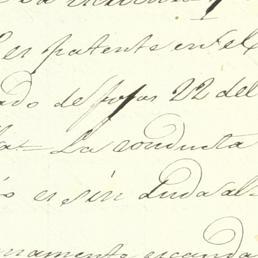 es patente en el
ado de fojas 22 del
la - La conducta
o es sin duda al-
namento escanda